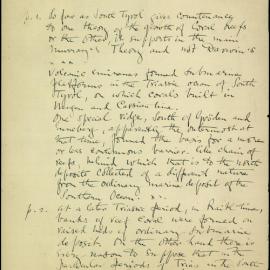 p. 1. So far as South Tyrol gives countenance
to one theory of the growth of Coral Reefs
or the other, it supports in the main
Murray's Theory and not Darwin's
Volcanic eminences formed submarine
platforms in the Triassic ocean of South
Tyrol, on which corals built in
Wengen and Cassian time.
One special ridge, South of Gröden and
Enneberg, apparently the outermost at
that time, formed the basis for a more
or less continuous barrier-like chain of
reefs, behind which that is to the north
deposits collected of a different nature
from the ordinary marine deposit of the
Southern Ocean.
p. 2. At a later Triassic period, in Raibl time,
banks of reef coral were formed on
raised beds of ordinary submarine
deposit. On the other hand there is
every reason to suppose that in
particular periods of Trias in the South